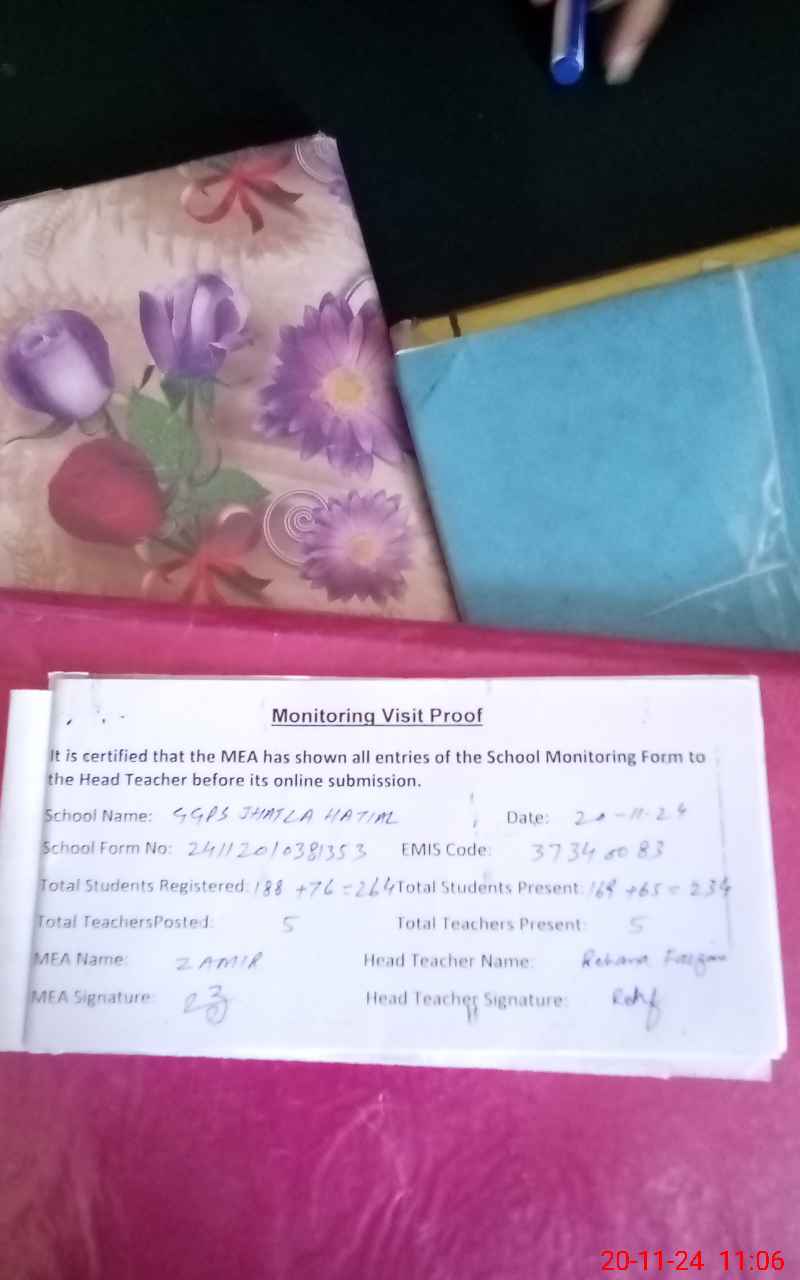 Monitoring Visit Proof
It is certified that the MEA has shown all entries of the School Monitoring Form to
the Head Teacher before its online submission.
School Name: GGPS JHATLA HATIAL Date: 20-11-24
School Form No: 24112010381353 EMIS Code: 37340083
Total Students Registered: 188 +76 = 264 Total Students Present: 169 +65 = 234
Total TeachersPosted: 5 Total Teachers Present: 5
MEA Name: ZAMIR Head Teacher Name: Rehana
MEA Signature: Head Teacher Signature:
20-11-24 11:06